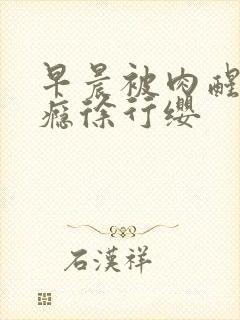 早晨被肉醒
瘾徐行缨
石漢祥